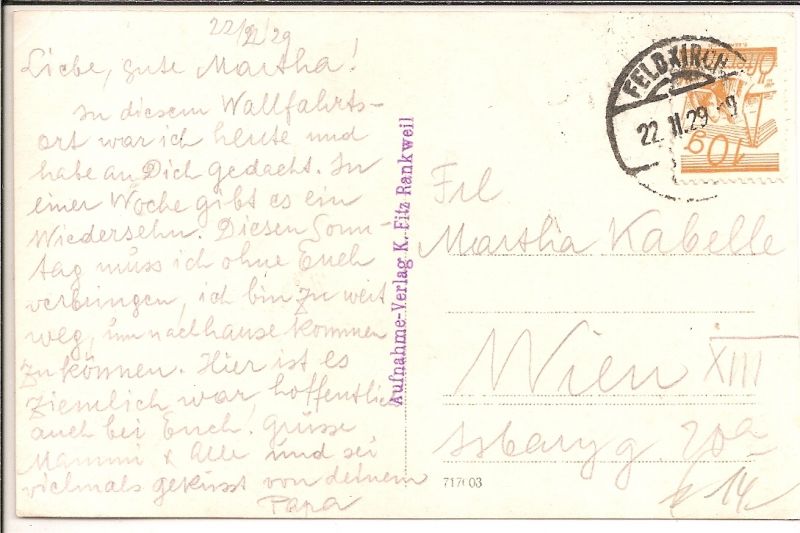 22/II 29
Liebe, gute Martha!
In diesem Wallfahrts-
ort war ich heute und
habe an Dich gedacht. In
einer Woche gibt es ein
Wiedersehn. Diesen Sonn-
tag muss ich ohne Euch
verbringen, ich bin zu weit
weg, um nachhause kommen
zu können. Hier ist es
ziemlich war, hoffentlich
auch bei Euch! Grüsse
Mamm & Alle und sei
vielmals geküsst von deinem
Papa
Aufnahme-Verlag: K. Eitz Rankweil
FELDKIRCH
22.II.29
10g
Frl
Martha Kabelle
Wien XIII
g. 20a
14
717 03